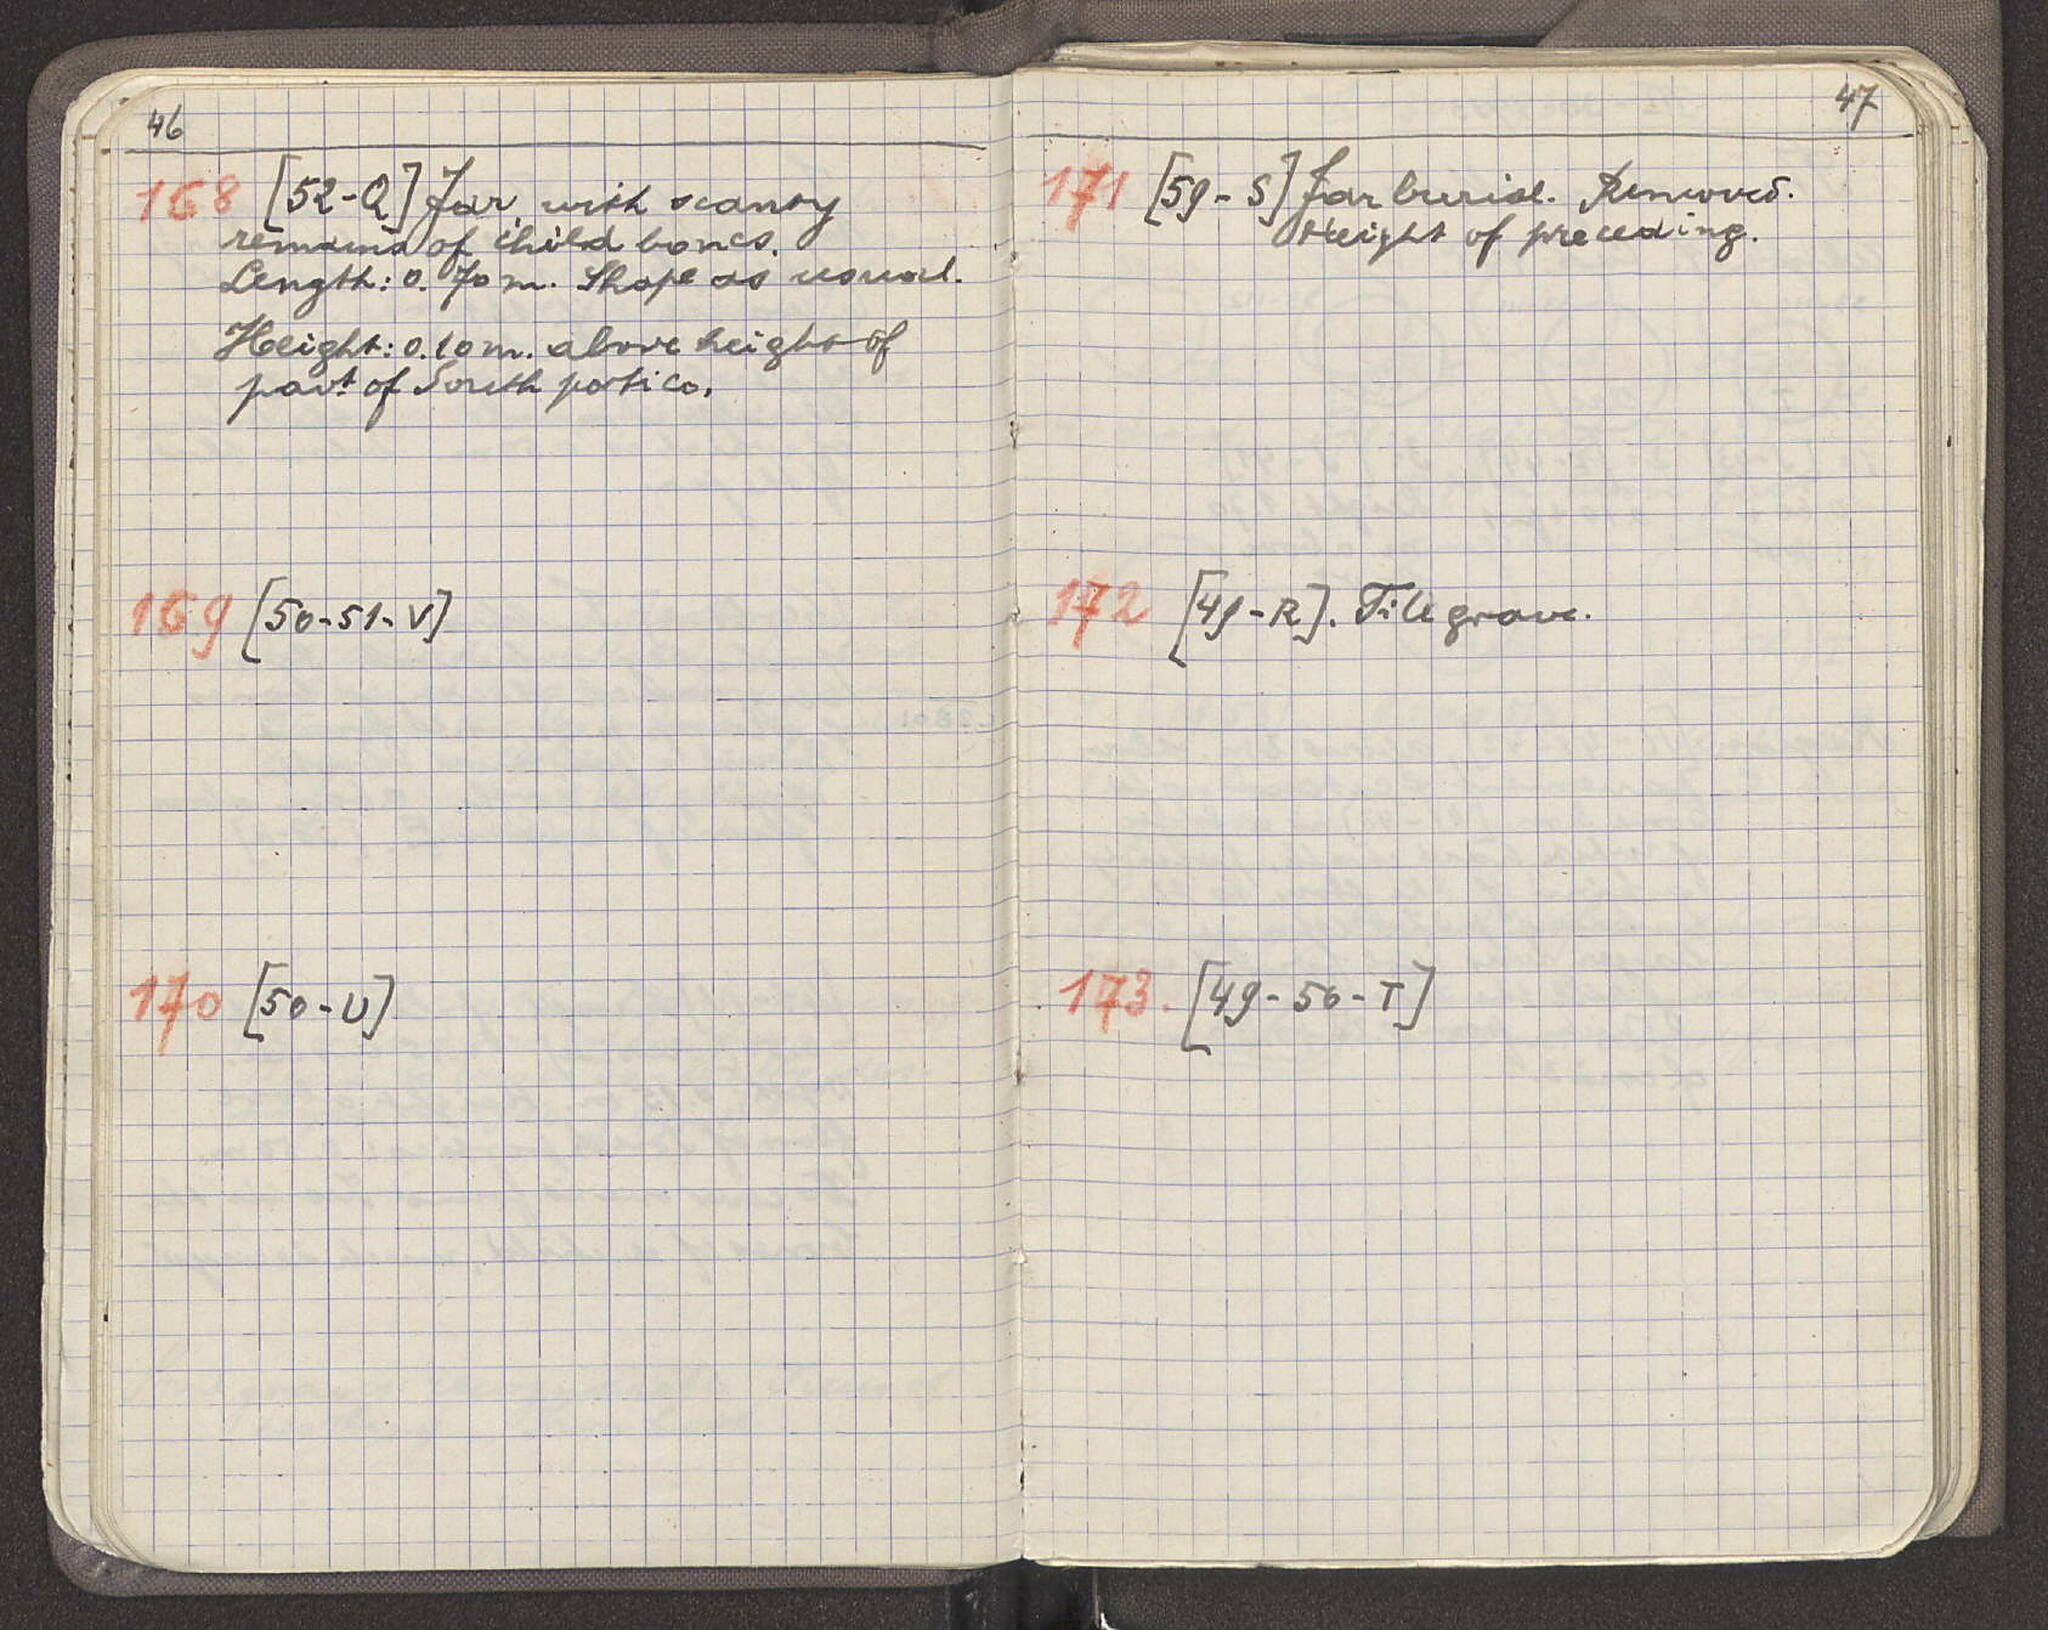 46
168 [52-Q] Jar, with scanty
remains of child bones.
Length: 0.70 m. Shape as usual.
Height: 0.10 m. above height of
pavt. of South portico.
169 [50-51-V]
170 [50-U]
47
171 [59-S] Jar burial. Removed.
Height of preceding.
172 [49-R]. Tile grave.
173. [49-50-T]